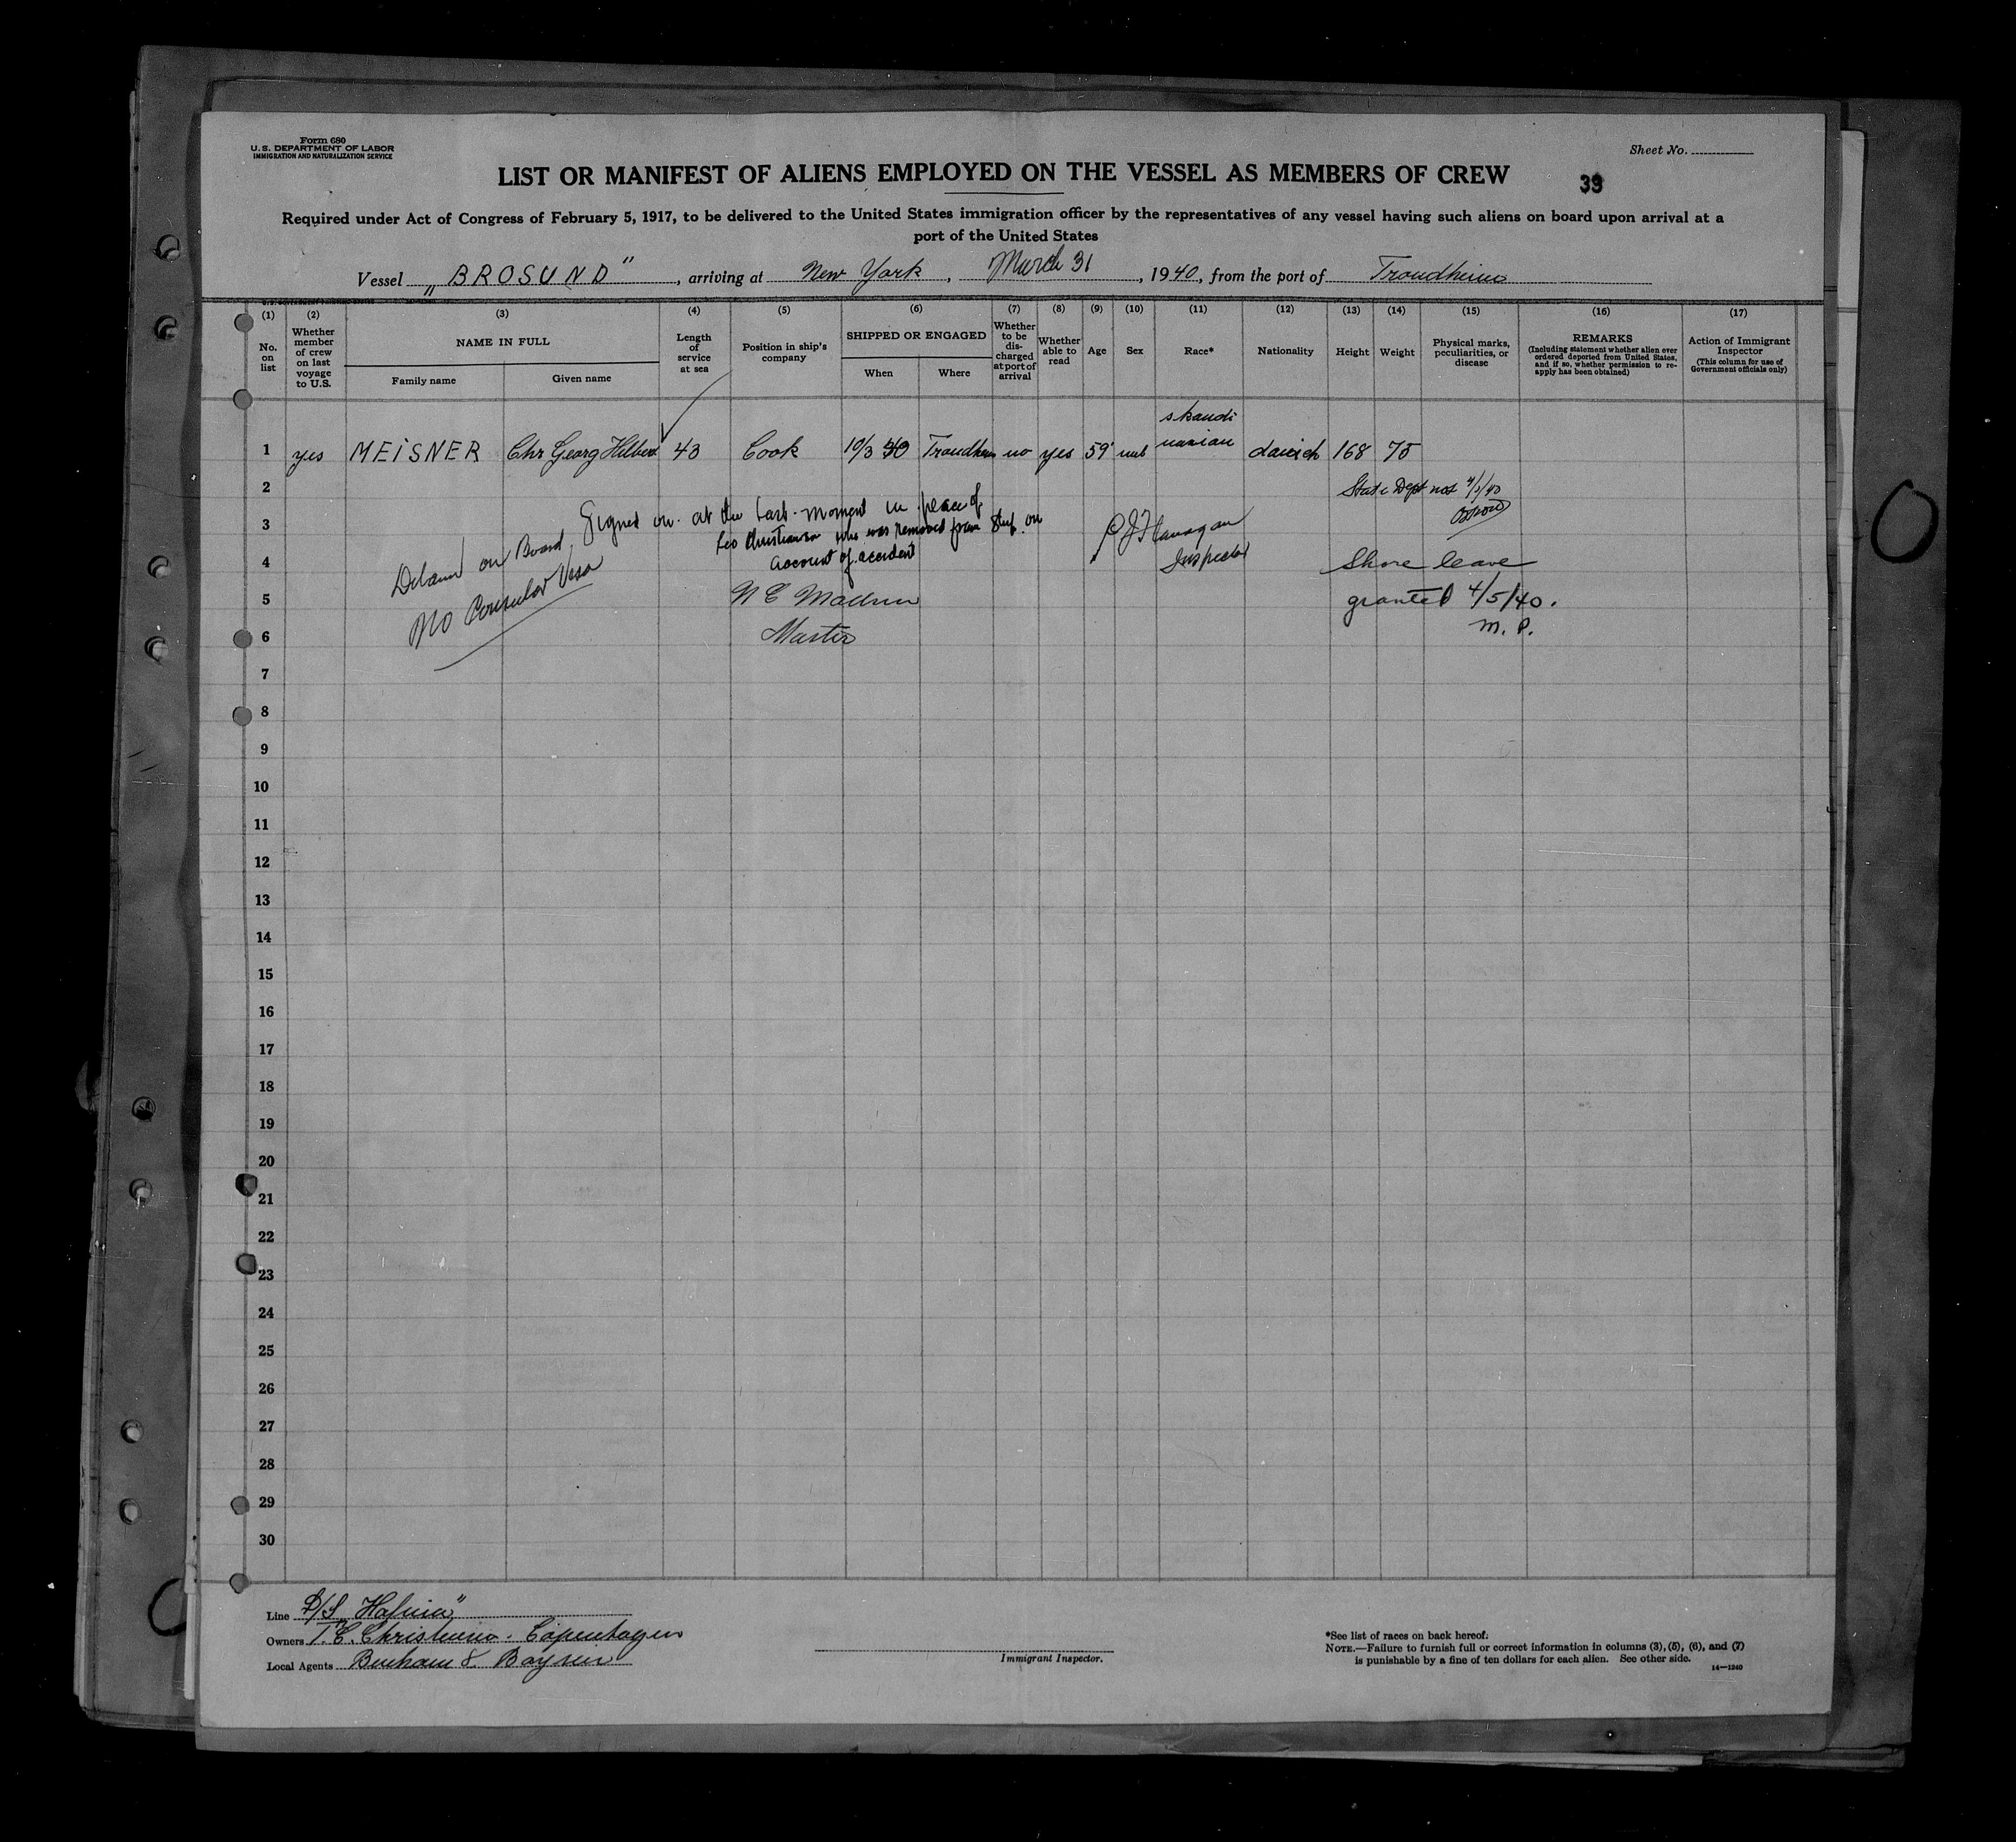 Form 680
U.S. DEPARTMENT OF LABOR
IMMIGRATION AND NATURALIZATION SERVICE
Sheet No.
LIST OR MANIFEST OF ALIENS EMPLOYED ON THE VESSEL AS MEMBERS OF CREW
39
Required under Act of Congress of February 5, 1917, to be delivered to the United States immigration officer by the representatives of any vessel having such aliens on board upon arrival at a
port of the United States
Vessel „BROSUND", arriving at New York, March 31, 1940, from the port of Trondheim
(1) (2) (3) (4) (5) (6) (7) (8) (9) (10) (11) (12) (13) (14) (15) (16) (17)
No. on list
Whether member of crew on last voyage to U.S.
NAME IN FULL
Family name
Given name
Length of service at sea
Position in ship's company
SHIPPED OR ENGAGED
When
Where
Whether to be discharged at port of arrival
Whether able to read
Age
Sex
Race*
Nationality
Height
Weight
Physical marks, peculiarities, or disease
REMARKS
(Including statement whether alien ever ordered deported from United States, and if so, whether permission to reapply has been obtained)
Action of Immigrant Inspector
(This column for use of Government officials only)
1 yes MEISNER Chr Georg Hilbert 43 Cook 10/3 40 Trondheim no yes 59 skandinavian 168 75
2 State Dept 4/1/40
Signed on at the last moment in place of
3 Leo Christiansen who was removed from ship on
account of accident
Flanagan
Inspector
4 on Board
No Consular Visa
Shore leave
5 granted 4/5/40.
M. P.
6 Master
7
8
9
10
11
12
13
14
15
16
17
18
19
20
21
22
23
24
25
26
27
28
29
30
Line D/S Hafnia"
Owners Copenhagen
Local Agents Benham & Boyesen
Immigrant Inspector.
*See list of races on back hereof.
NOTE.—Failure to furnish full or correct information in columns (3), (5), (6), and (7)
is punishable by a fine of ten dollars for each alien. See other side.
14—1240